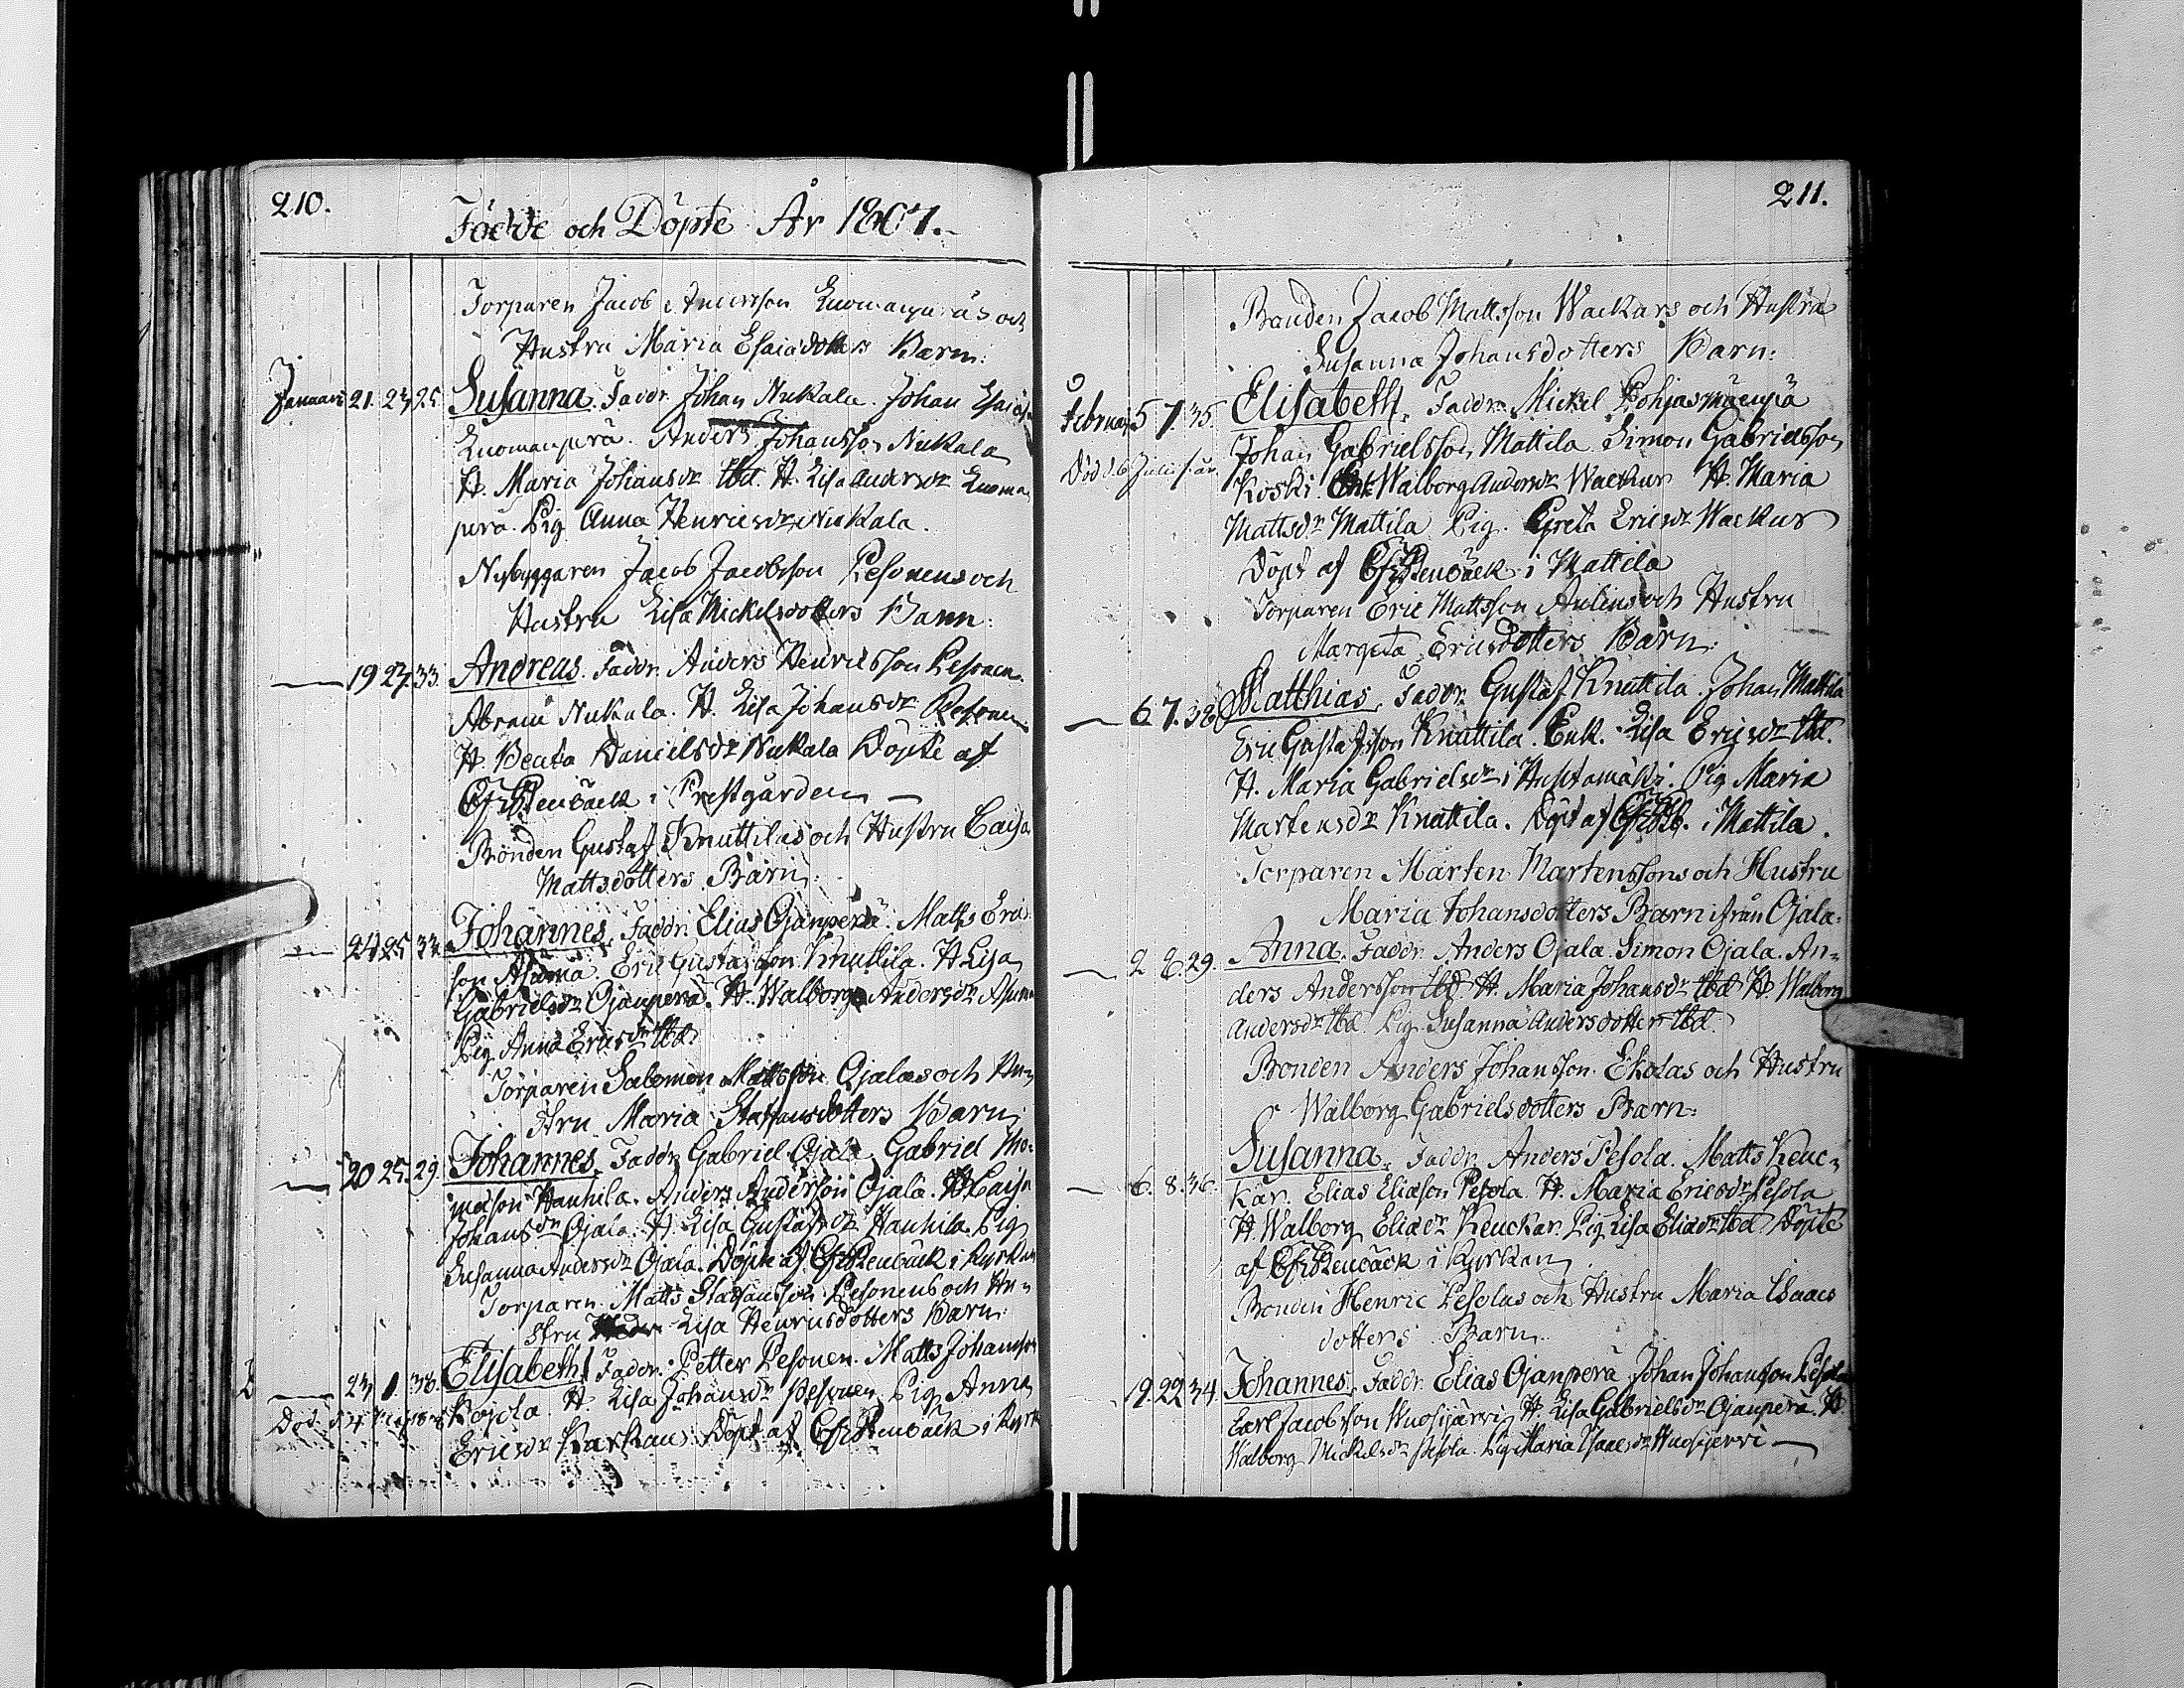 210.
Födde och Döpte År 1807.
Torparen Jacob Andersson Kuomanperäs och
Hustru Maria Esaiædotters Barn:
Januarii 21. 23. 25. Susanna. Faddr. Johan Niskala. Johan Esaiæs
Kuomanperä. Anders Johansson Niskala
H. Maria Johansdr Ibd. H. Lisa Andersdr Kuoman
perä. Pig. Anna Henricsdr Niskala.
Nybyggaren Jacob Jacobsson Pesonens och
Hustru Lisa Mickelsdotters Barn:
19 27. 33. Andreas. Faddr. Anders Henricsson Pesonen.
Abram Niskala. H. Lisa Johansdr Pesonen
H. Beata Danielsdr Niskala Döpte af
i Prestgården
Bonden Gustaf Knuttilas och Hustru Caisa
Mattsdotters Barn:
24 25 33. Johannes. Faddr. Elias Ojanperä. Matts Erics
son Asumä. Eric Gustafsson Knuttila. H Lisa
Gabrielsdr Ojanperä. H. Walborg Andersdr
Pig. Anna Ericsdr Ibd
Torparen Salomon Mattsson Ojalas och Hu-
stru Maria Staffansdotters Barn:
20 25. 29. Johannes. Faddr. Gabriel Ojala Gabriel Tho-
masson Hauhila. Anders Andersson Ojala. H. Caisa
Johansdr Ojala. H. Lisa Gustafsdr Hauhila. Pig
Susanna Andersdr Ojala. Döpte af i Kyrkan
Torparen Matts Staffansson Pesonens och Hu-
stru Lisa Henricsdotters Barn:
23 1. 38. Elisabeth. Faddr. Petter Pesonen. Matts Johansson
Kojola. H. Lisa Johansdr Pesonen. Pig Anna
Död
Ericsdr Karkau. Döpt af i Kyrk
211.
Bonden Jacob Mattsson Wackurs och Hustru
Susanna Johansdotters Barn:
Februarii 5 7 35. Elisabeth. Faddr. Mickel Pohjasmäenpä
Johan Gabrielsson Mattila Simon Gabrielsson
Död d. 6 Julii s. år
Koski. Enk. Walborg Andersdr Wackur H. Maria
Mattsdr Mattila Pig. Greta Ericsdr Wackur
Döpt af i Mattila
Torparen Eric Mattsson Aulins och Hustru
Margeta Ericsdotters Barn:
6 7. 38 Matthias. Faddr. Gustaf Knuttila. Johan Mattila
Eric Gustafsson Knuttila. Enk. Lisa Ericsdr Ibd.
H. Maria Gabrielsdr i Pig Maria
Martensdr Knuttila. Döpt af i Mattila.
Torparen Mårten Martenssons och Hustru
Maria Johansdotters Barn ifrån Ojala:
2 8. 29. Anna. Faddr. Anders Ojala. Simon Ojala. An-
ders Andersson Ibd. H. Maria Johansdr Ibd H. Walborg
Andersdr Ibd. Pig. Susanna Andersdotter Ibd.
Bonden Anders Johansson Ekolas och Hustru
Walborg Gabrielsdotters Barn:
6. 8. 36. Susanna. Faddr. Anders Pesola. Matts Keuc-
kar. Elias Eliæson Pesola. H. Maria Ericsdr Pesola
H. Walborg Eliædr Keuckar. Pig Lisa Eliædr Ibd Döpte
af i Kyrkan
Bonden Henric Pesolas och Hustru Maria Isaacs
dotters Barn
19. 22 34. Johannes. Faddr. Elias Ojanperä Johan Johansson Pesola
Carl Jacobsson Wuosijärvi. H. Lisa Gabrielsdr Ojanperä. H.
Walborg Mickelsdr Pesola. Pig Maria Isaacsdr Wuosijervi